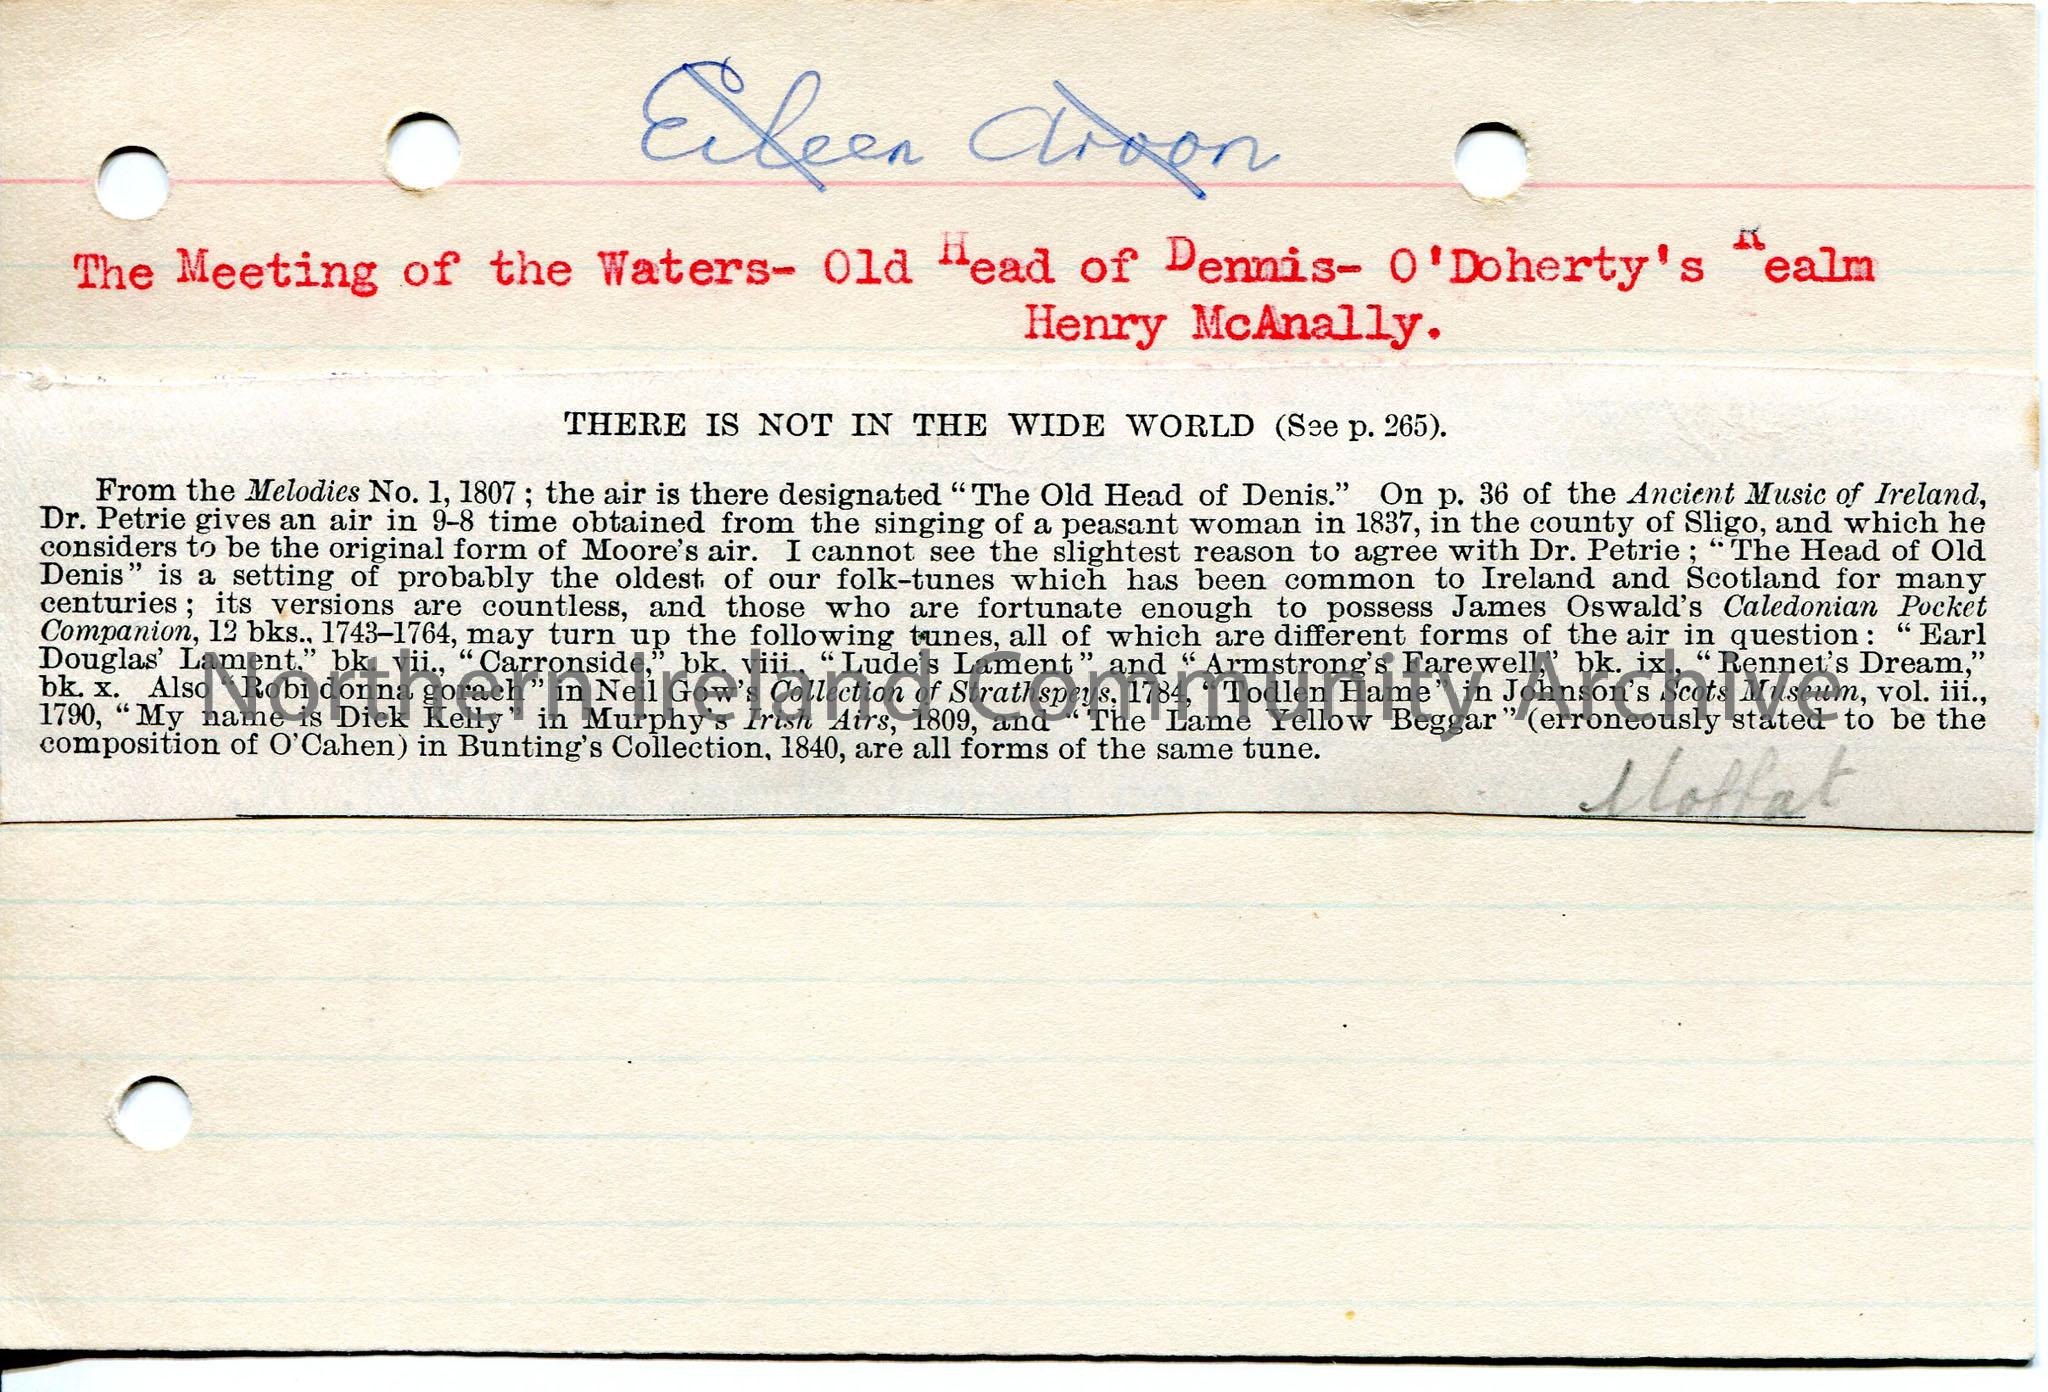 Eileen Aroon
The Meeting of the Waters- Old Head of Dennis- O'Doherty's Realm
Henry McAnally.
THERE IS NOT IN THE WIDE WORLD (See p. 265).
From the Melodies No. 1, 1807 ; the air is there designated "The Old Head of Denis." On p. 36 of the Ancient Music of Ireland,
Dr. Petrie gives an air in 9-8 time obtained from the singing of a peasant woman in 1837, in the county of Sligo, and which he
considers to be the original form of Moore's air. I cannot see the slightest reason to agree with Dr. Petrie ; "The Head of Old
Denis" is a setting of probably the oldest of our folk-tunes which has been common to Ireland and Scotland for many
centuries ; its versions are countless, and those who are fortunate enough to possess James Oswald's Caledonian Pocket
Companion, 12 bks., 1743–1764, may turn up the following tunes, all of which are different forms of the air in question : "Earl
Douglas' Lament," bk. vii., "Carronside," bk. viii., "Lude's Lament" and "Armstrong's Farewell," bk. ix., "Rennet's Dream,"
bk. x. Also "Robi donna gorach" in Neil Gow's Collection of Strathspeys, 1784, "Todlen Hame" in Johnson's Scots Museum, vol. iii.,
1790, "My name is Dick Kelly" in Murphy's Irish Airs, 1809, and "The Lame Yellow Beggar" (erroneously stated to be the
composition of O'Cahen) in Bunting's Collection, 1840, are all forms of the same tune.
Northern Ireland Community Archive
Moffat